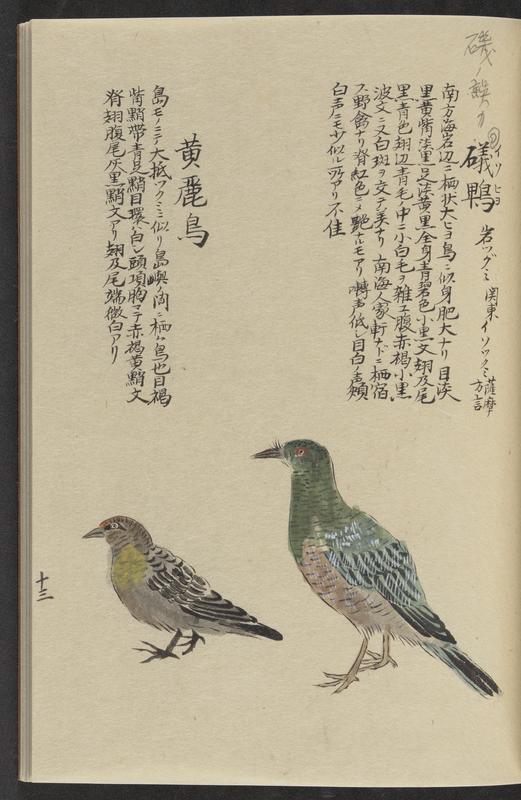 磯ノ誤カ
イソヒヨ
礒鴨 岩ツグミ 関東イソツクミ 薩摩方言
南方海岩辺ニ栖状大ヒヨ鳥ニ似身肥大ナリ 目淡
黒黄觜淡黒足淡黄黒全身青碧色小黒文翅及尾
黒青色翅辺青毛ノ中ニ小白毛ヲ雑エ腹赤褐小黒
波文ニ又白斑ヲ交テ美ナリ 南海人家軒ナトニ栖宿
ス野禽ナリ脊紅色ニメ艶ナルモアリ囀声低シ目白ノ声頬
白声ニモ少似ル所アリ不佳
黄麗鳥
島モノニテ大抵ツクミニ似リ島嶼ノ間ニ栖ム鳥也目褐
觜黧帯青足黧目環ハ白シ頭項胸マテ赤褐黄黧文
脊翅腹尾灰黒黧文アリ翅及尾端微白アリ
十三